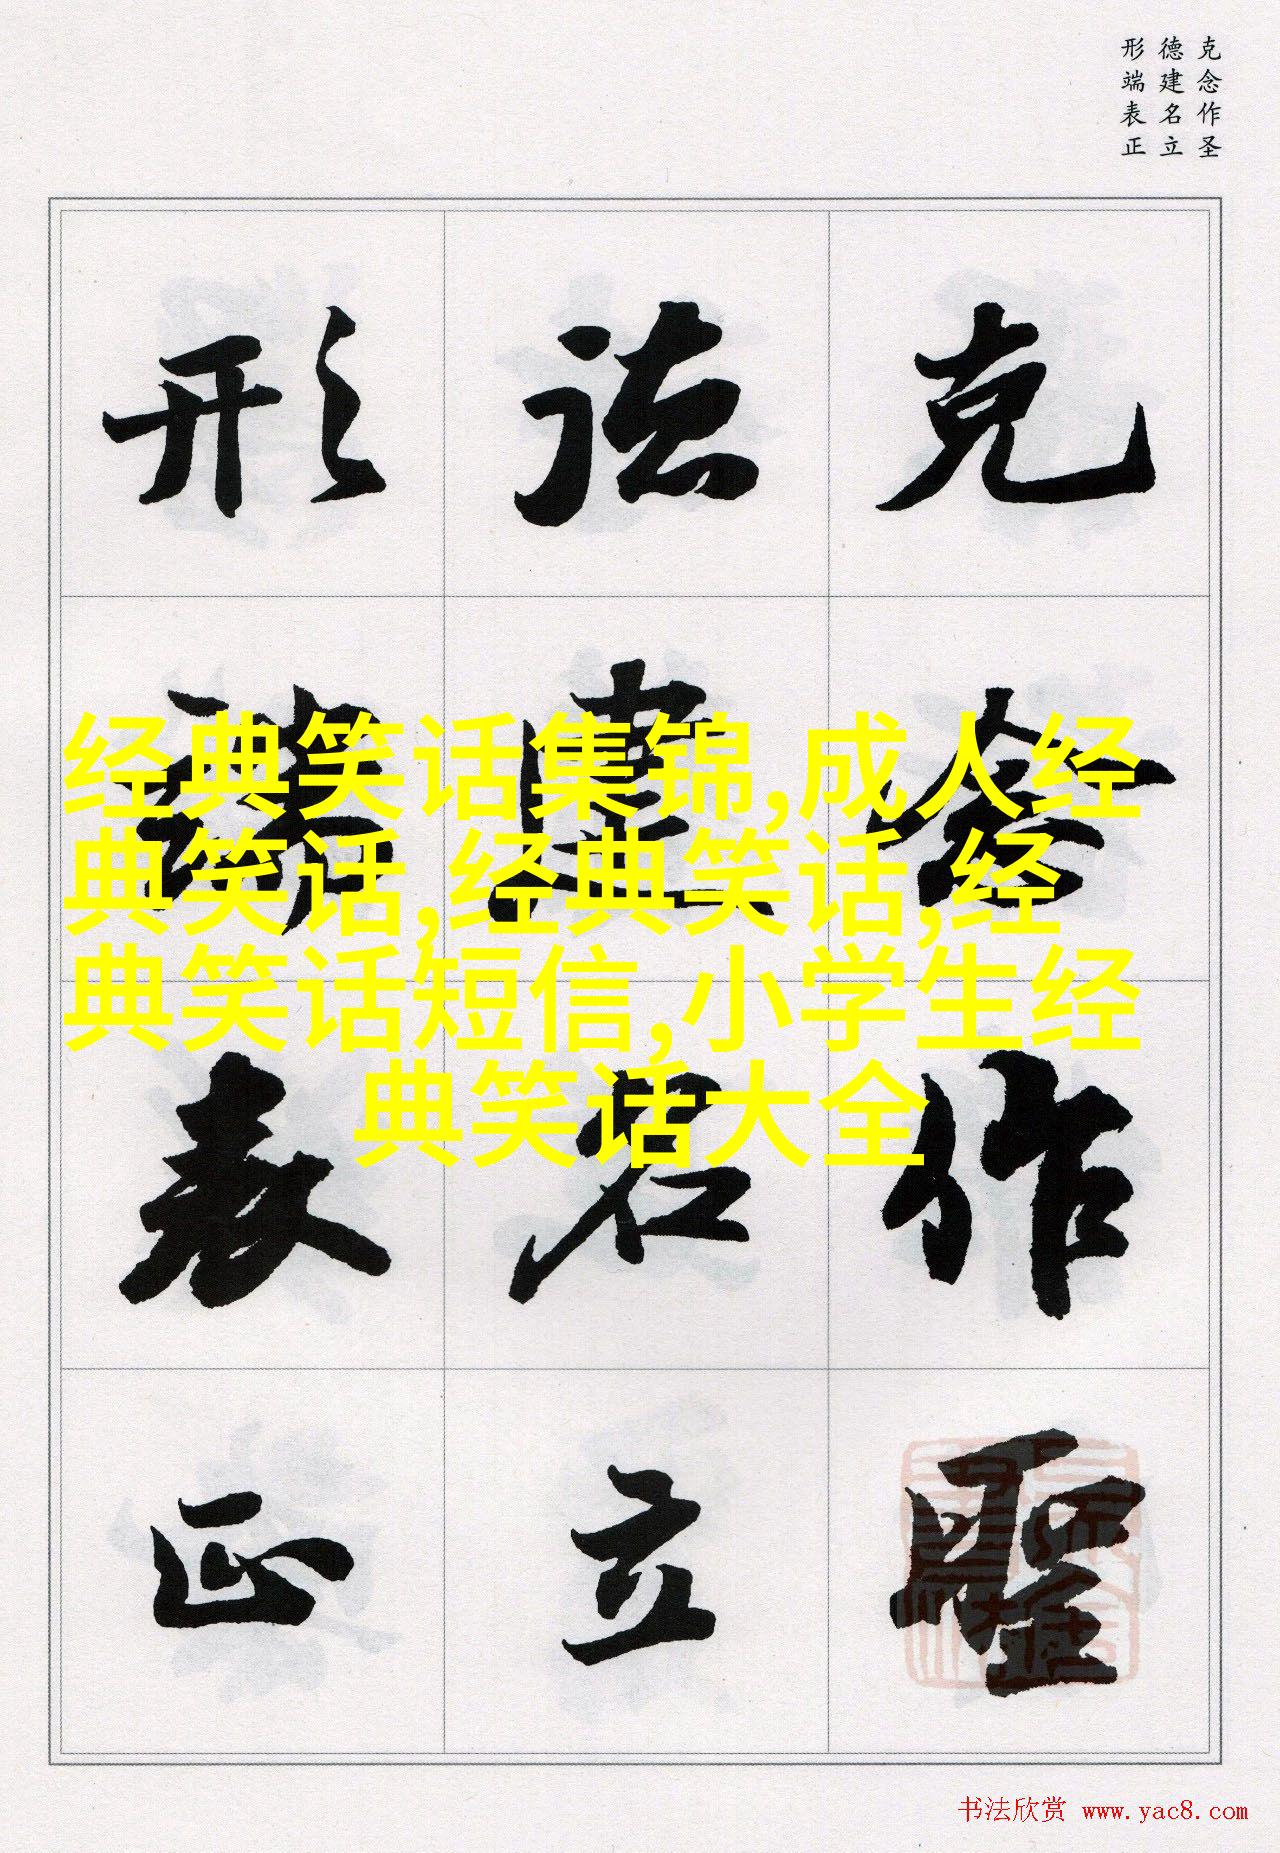 克念作圣
德建名立
形端表正
克念作聖
德建名立
形端表正
经典笑话集锦,成人经
典笑话,经典笑话,经
典笑话短信,小学生经
典笑话大全
书法欣赏 www.yac8.com